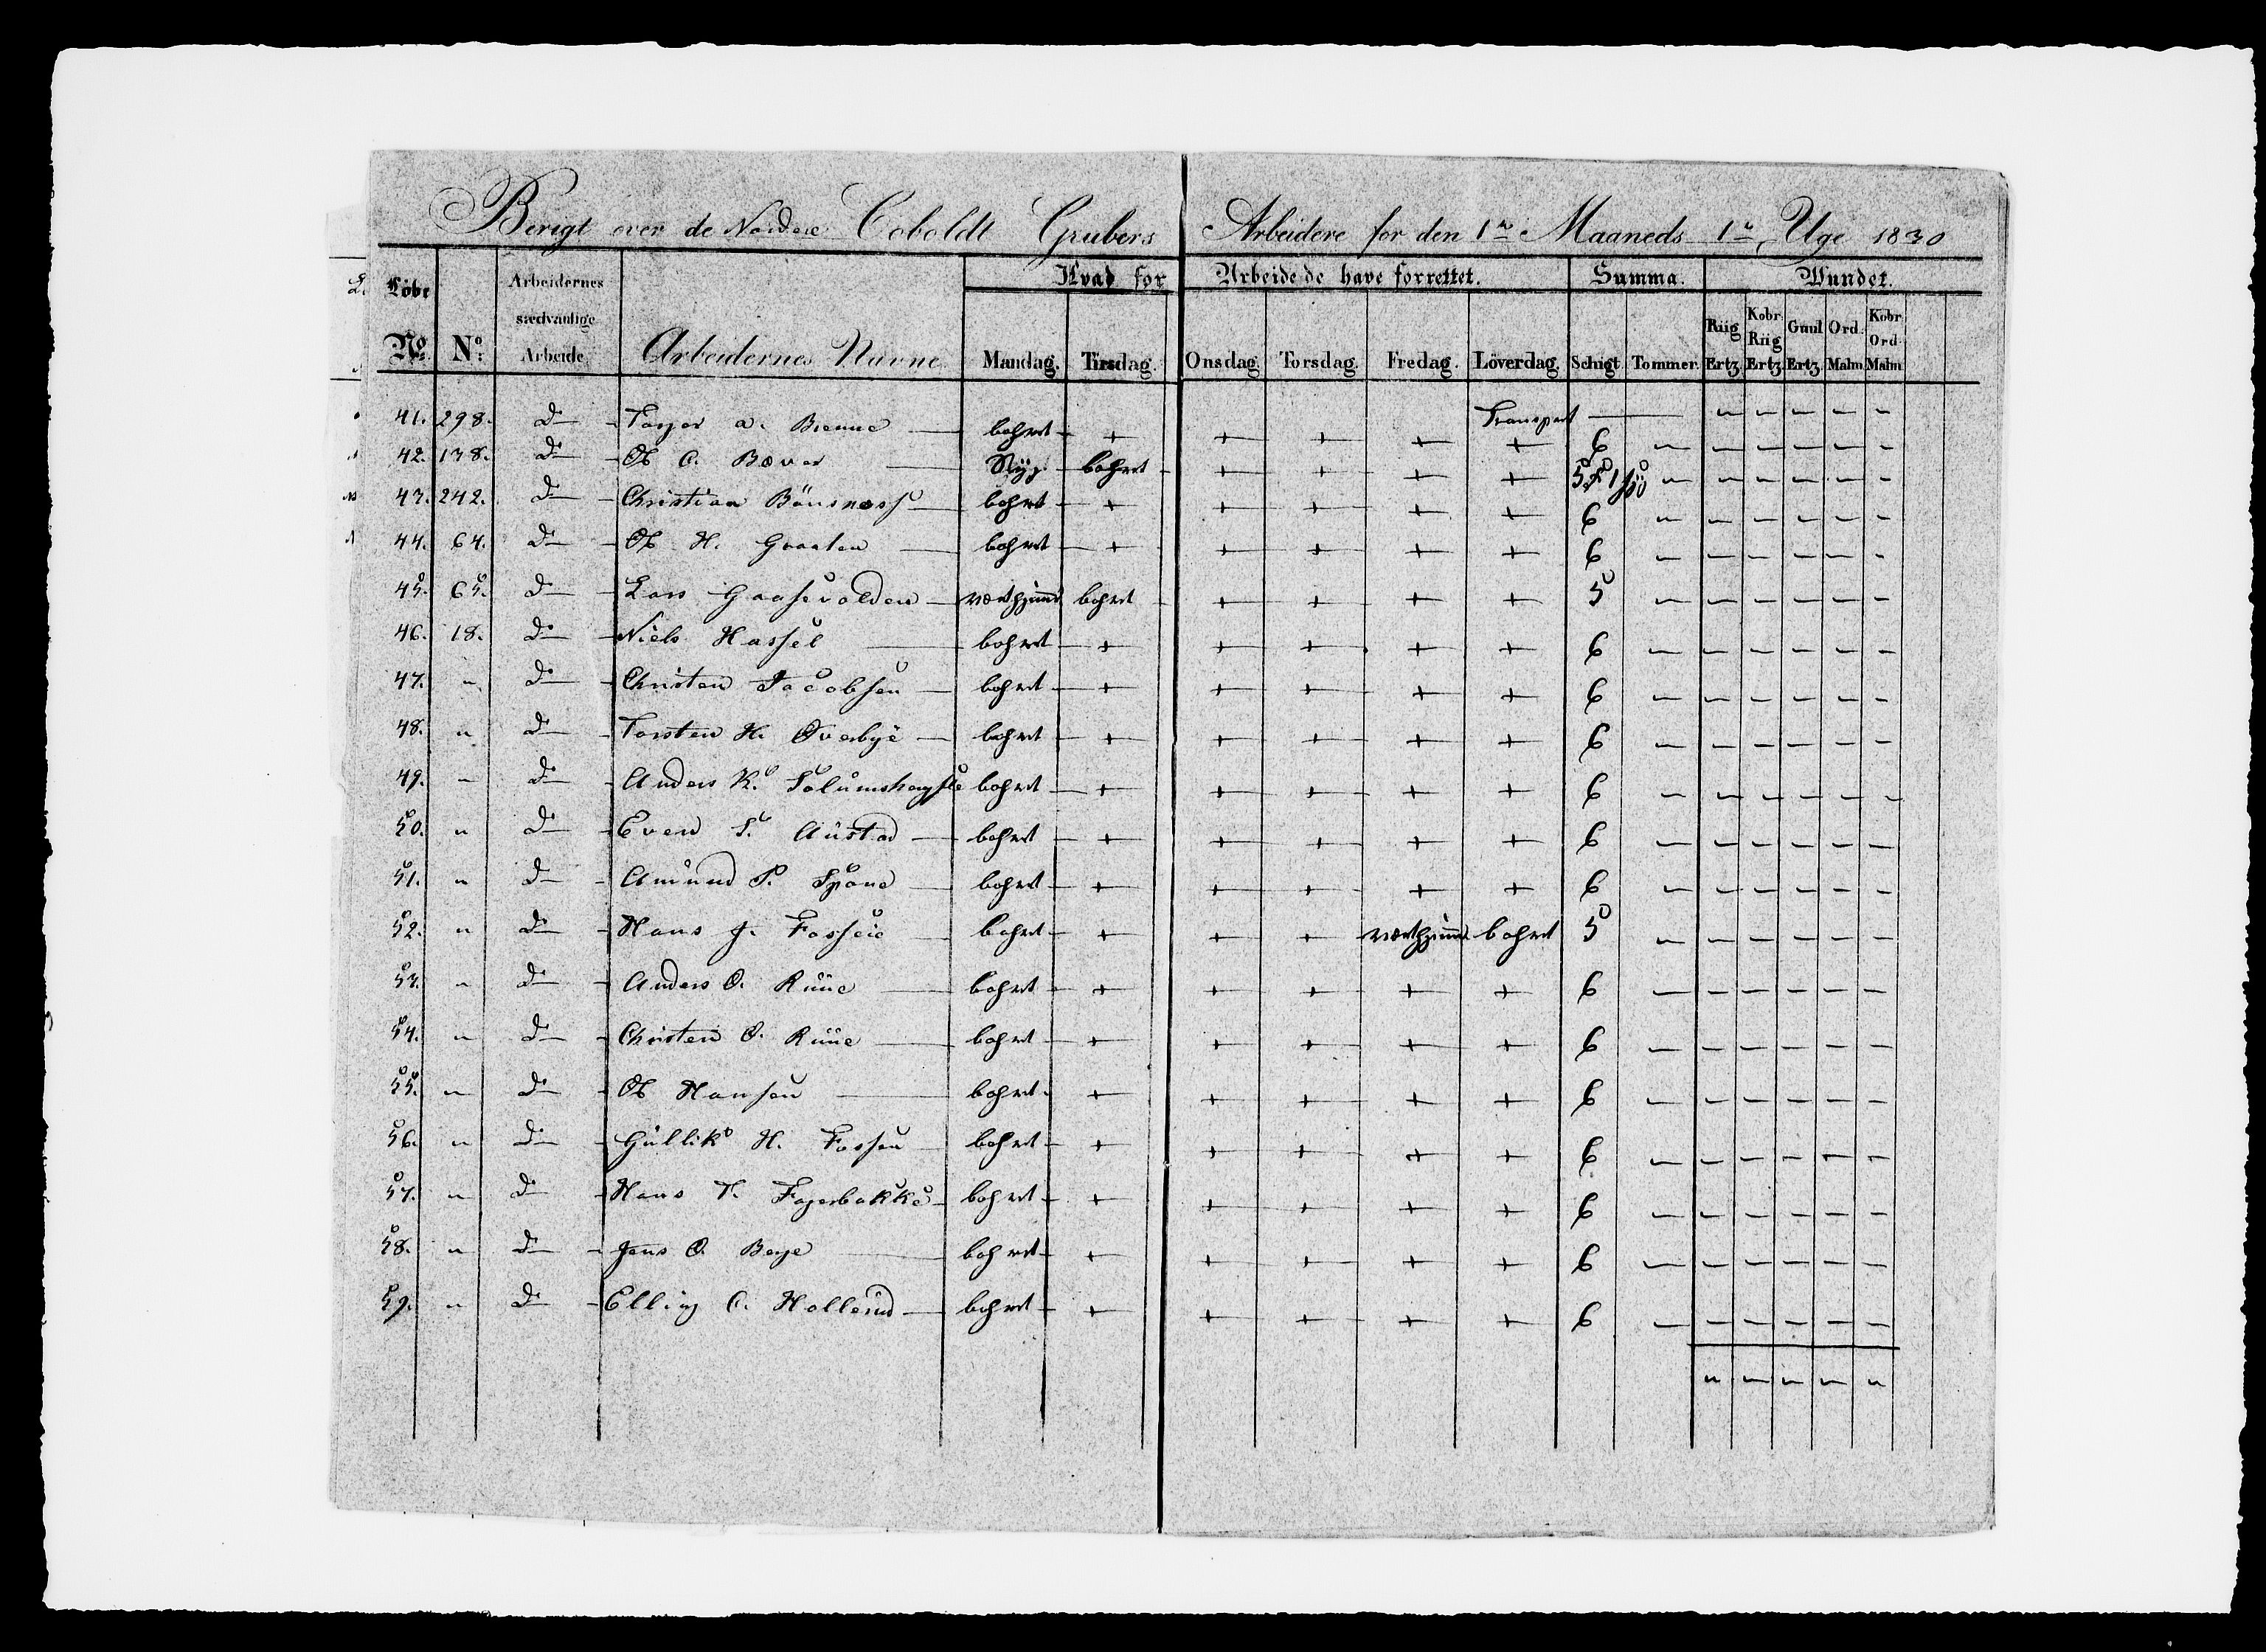 Berigt over de Nordre Coboldt Grubers Arbeidere for den 1te Maaneds 1te Uge 1830
Löbe No. No: Arbeidernes sædvanlige Arbeide. Arbeidernes Navne Hvad for Arbeide de have forrettet. Summa. Wundet.
Mandag. Tirsdag. Onsdag. Torsdag. Fredag. Löverdag. Schigt Tommer. Riig Ertz. Kobr: Riig Ertz. Guul Ertz. Ord: Malm. Kobr: Ord: Malm
Transport — " " " " "
41. 298. do — Torger A. Brenne — bohret + + + + + 6 " " " " " "
42. 138. do — Ol C. Bæver — bohret + + + + " " " " " "
43. 242. do — Christian Bönsness — bohret + + + + + 6 " " " " " "
44. 64. do — Ol H. Graaten — bohret + + + + + 6 " " " " " "
45. 65. do — Lars Gaasevolden — bohret + + + + 5 " " " " " "
46. 18. do — Niels Hassel — bohret + + + + + 6 " " " " " "
47. " do — Christen Jacobsen — bohret + + + + + 6 " " " " " "
48. " do — Torsten H. Overbye — bohret + + + + + 6 " " " " " "
49. " do — Anders K. bohret + + + + + 6 " " " " " "
50. " do — Even S. Austad — bohret + + + + + 6 " " " " " "
51. " do — Amund P. Spone — bohret + + + + + 6 " " " " " "
52. " do — Hans J. Fosseie — bohret + + + bohret 5 " " " " " "
53. " do — Anders O. Ruue — bohret + + + + + 6 " " " " " "
54. " do — Christen O. Ruue — bohret + + + + + 6 " " " " " "
55. " do — Ol Hansen — bohret + + + + + 6 " " " " " "
56. " do — Gullik H. Fossen — bohret + + + + + 6 " " " " " "
57. " do — Hans T. Fagerbakke — bohret + + + + + 6 " " " " " "
58. " do — Jens O. Beye — bohret + + + + + 6 " " " " " "
59. " do — Elling C. Hollerud — bohret + + + + + 6 " " " " " "
" " " " "